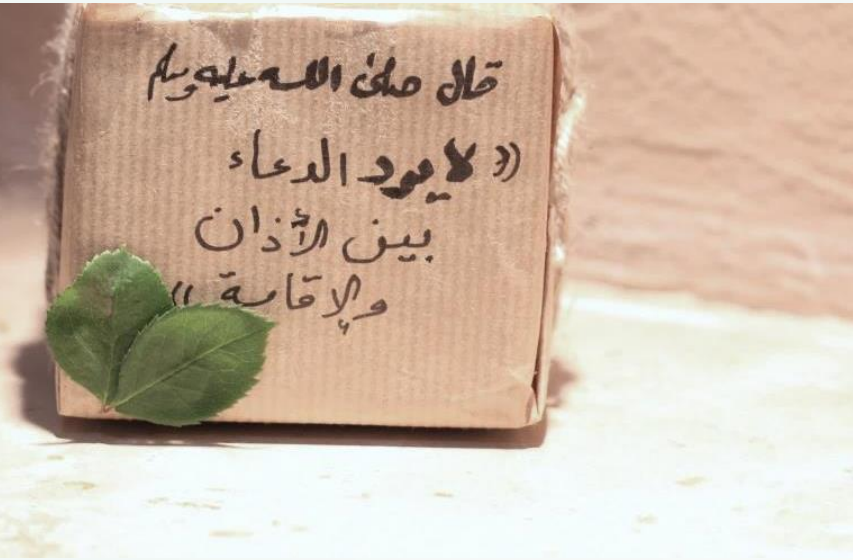 قال صلى الله عليه وسلم
« لا يرد الدعاء
بين الأذان
والإقامة »